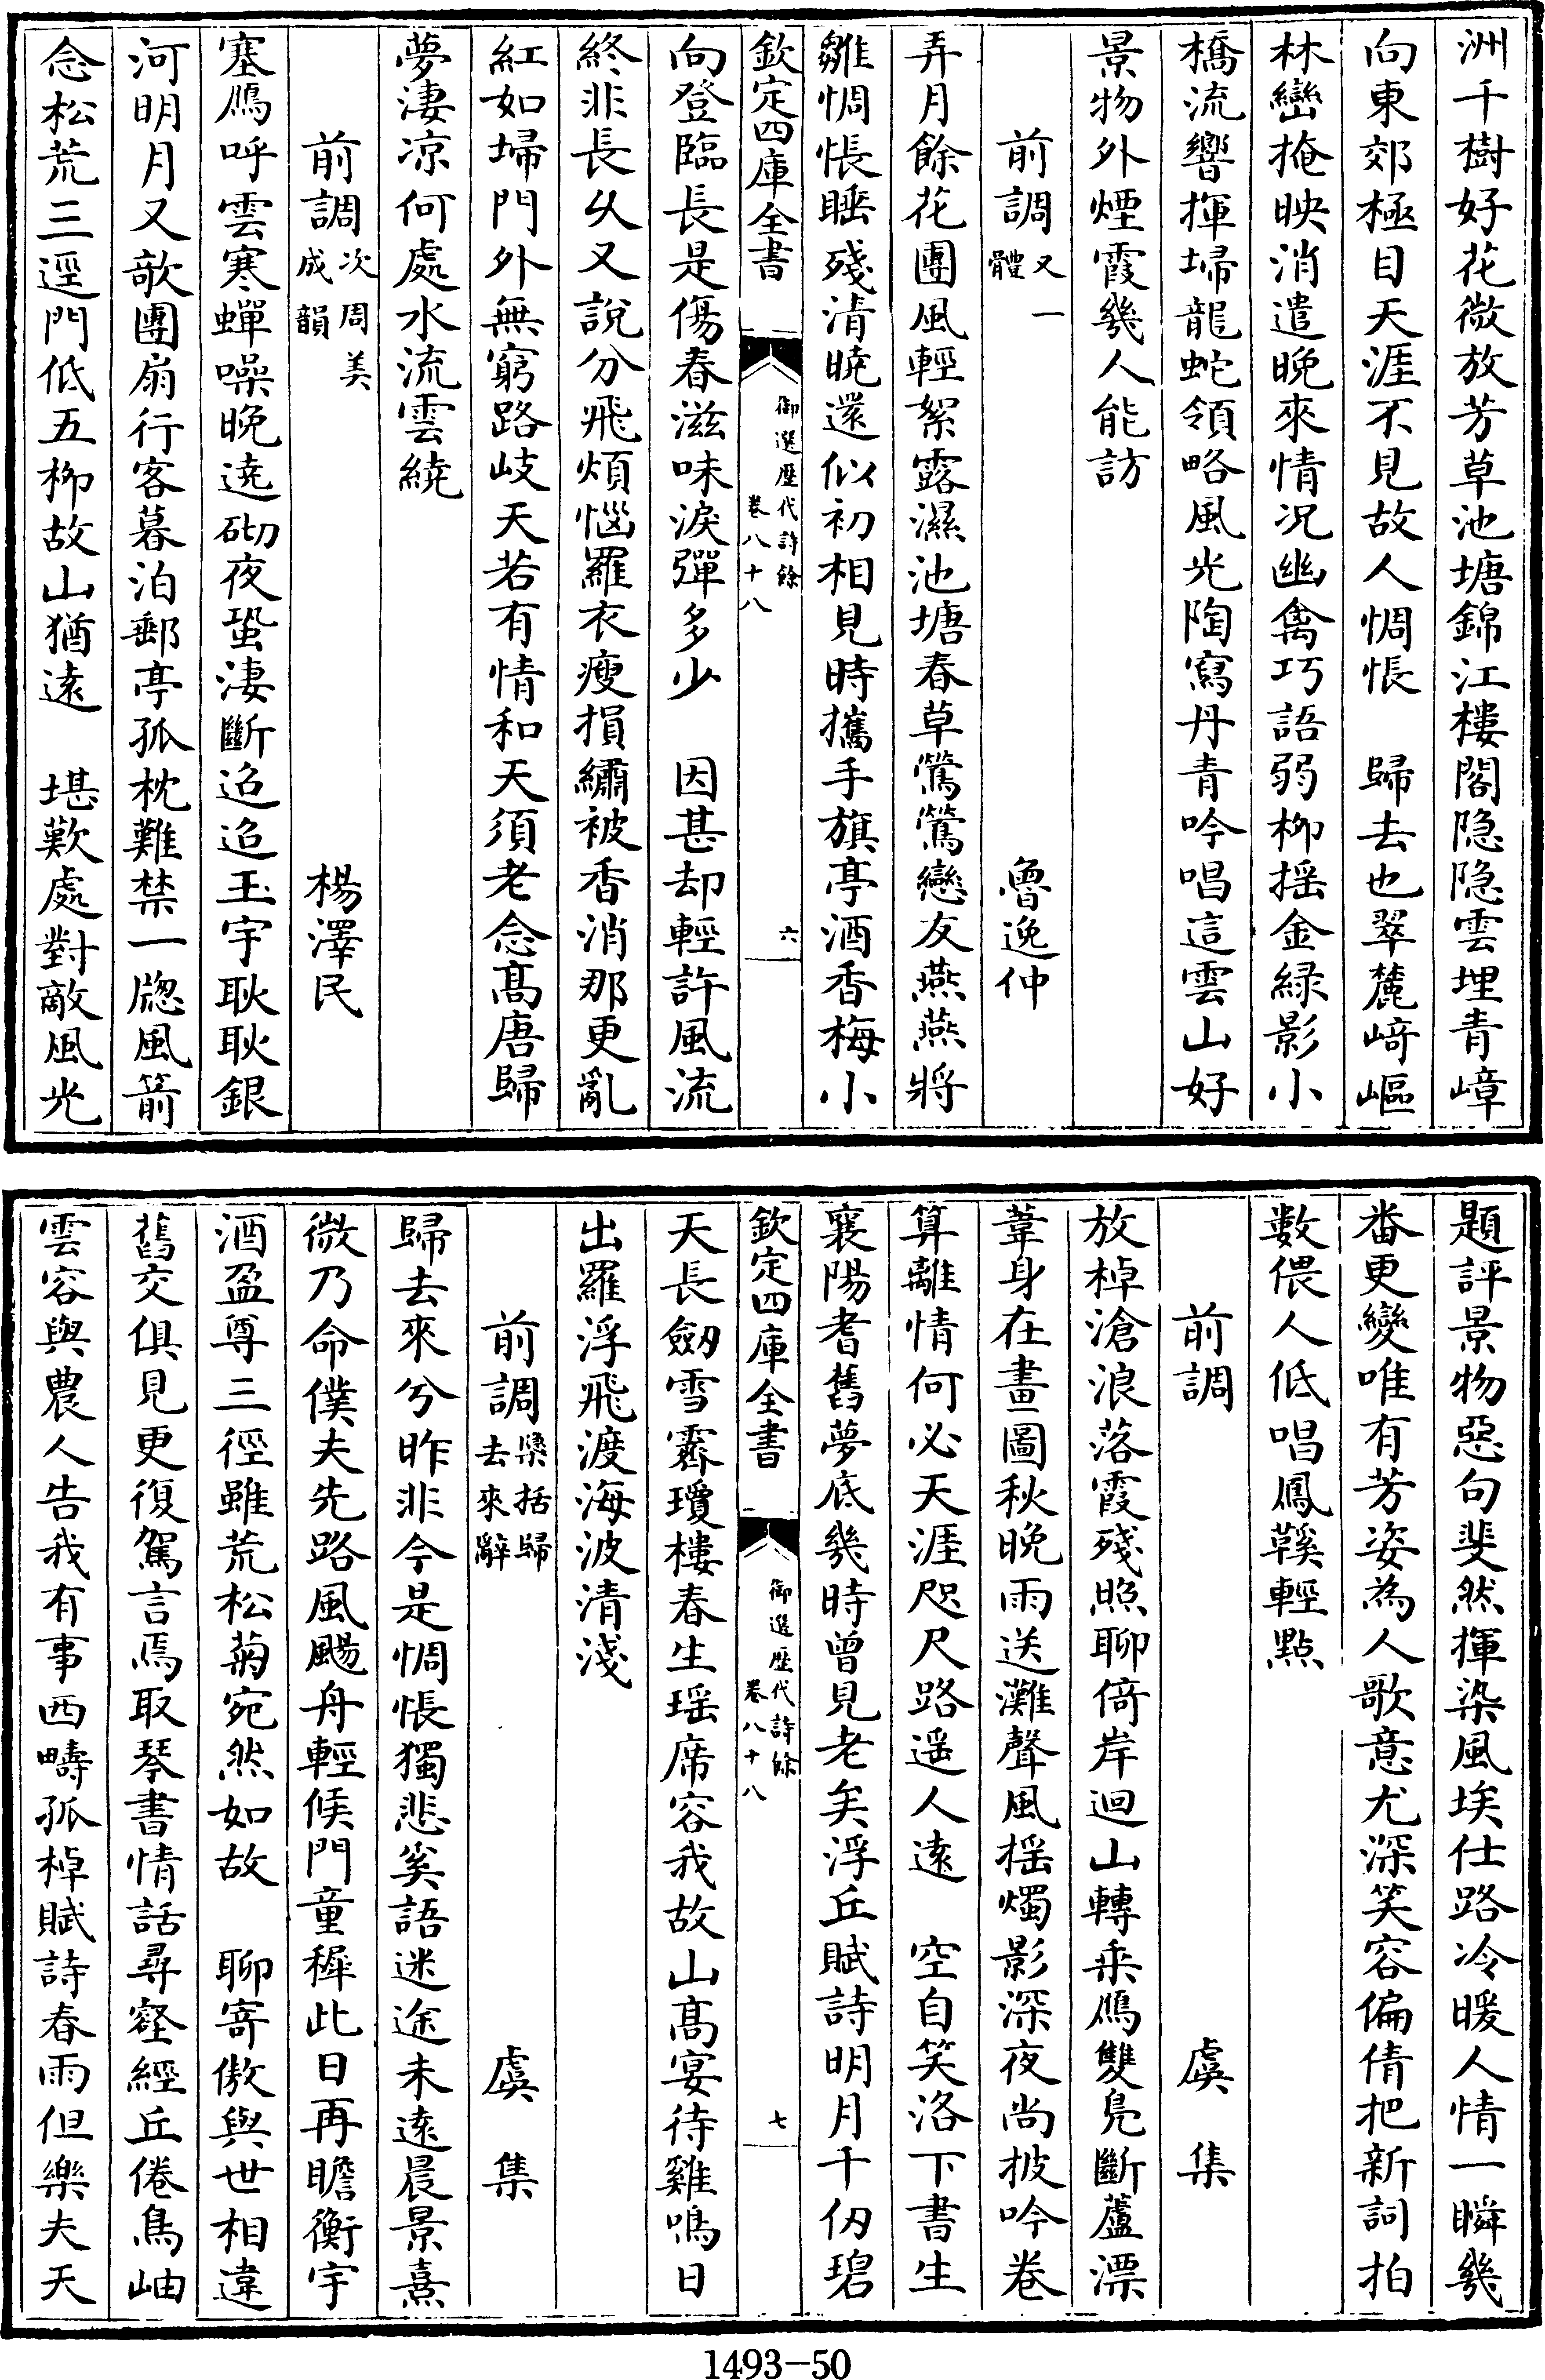 洲千樹好花微放芳草池塘錦江樓閣隐隐雲埋青嶂
向東郊極目天涯不見故人惆悵　歸去也翠麓﨑嶇
林巒掩映消遣晚來情况幽禽巧語弱柳揺金緑影小
橋流響揮埽龍蛇領略風光陶寫丹青吟唱這雲山好
景物外煙霞幾人能訪
前調又一體　魯逸仲
弄月餘花團風輕絮露濕池塘春草鶯鶯戀友燕燕將
雛惆悵睡殘清曉還似初相見時攜手旗亭酒香梅小
欽定四庫全書　御選歷代詩餘　卷八十八　六
向登臨長是傷春滋味淚彈多少　因甚却輕許風流
終非長久又說分飛煩惱羅衣瘦損繡被香消那更亂
紅如埽門外無窮路岐天若有情和天須老念髙唐歸
夢淒凉何處水流雲繞
前調次周美成韻　楊澤民
塞鴈呼雲寒蟬噪晚遶砌夜蛩淒斷迢迢玉宇耿耿銀
河明月又欹團扇行客暮泊郵亭孤枕難禁一牕風箭
念松荒三逕門低五柳故山猶遠　堪歎處對敵風光
題評景物惡句斐然揮染風埃仕路冷暖人情一瞬幾
番更變唯有芳姿為人歌意尤深笑容偏倩把新詞拍
數偎人低唱鳳鞵輕點
前調　虞集
放棹滄浪落霞殘照聊倚岸迴山轉乘鴈雙鳧斷蘆漂
葦身在畫圖秋晚雨送灘聲風揺燭影深夜尚披吟卷
算離情何必天涯咫尺路遥人遠　空自笑洛下書生
襄陽耆舊夢底幾時曾見老矣浮丘賦詩明月千仞碧
欽定四庫全書　御選歷代詩餘　卷八十八　七
天長劒雪霽瓊樓春生瑶席容我故山髙宴待雞鳴日
出羅浮飛渡海波清淺
前調櫽括歸去來辭　虞集
歸去來兮昨非今是惆悵獨悲奚語迷途未遠晨景熹
微乃命僕夫先路風颺舟輕候門童穉此日再瞻衡宇
酒盈尊三徑雖荒松菊宛然如故　聊寄傲與世相違
舊交俱見更復駕言焉取琴書情話尋壑經丘倦鳥岫
雲容與農人告我有事西疇孤棹賦詩春雨但樂夫天
1493-50